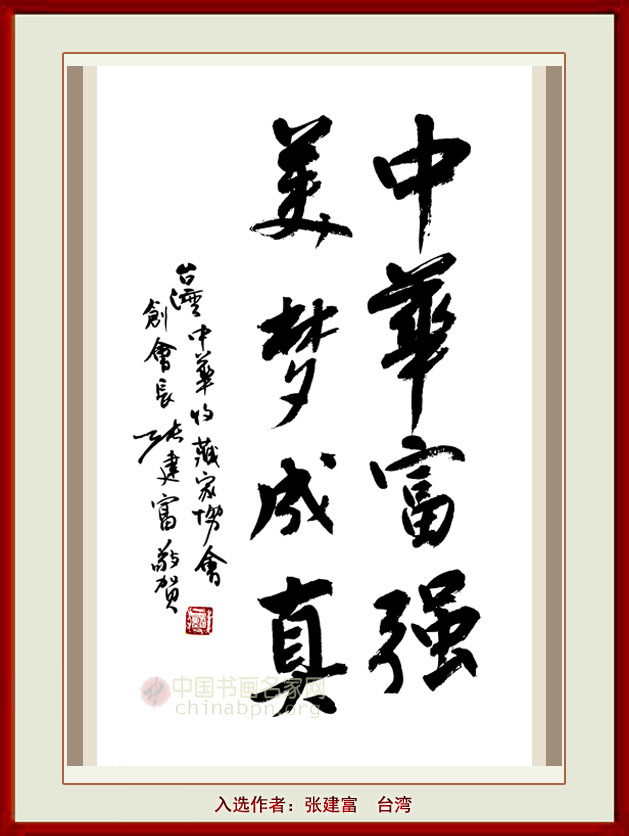 中華富强
美梦成真
台灣中華收藏家協會
創會長张建富敬賀
中国书画名家网
chinabpn.org
入选作者：张建富 台湾